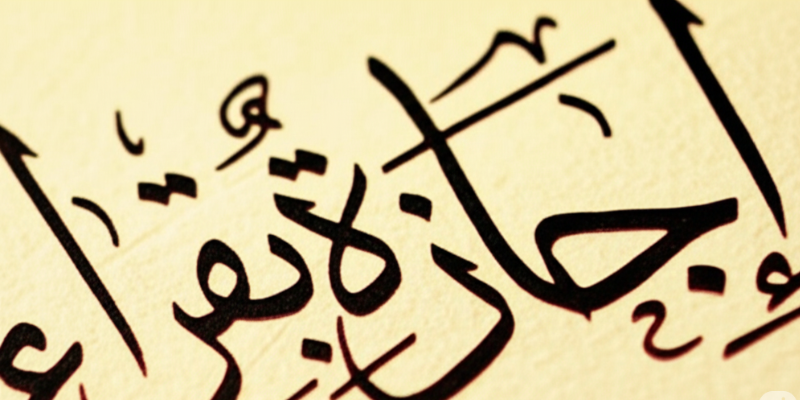 إجازة بقراء